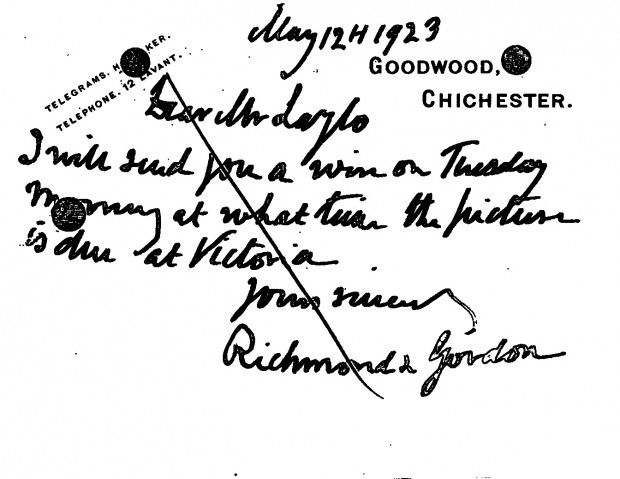 May 12th 1923
TELEGRAMS. KER.
TELEPHONE. 12 LAVANT.
GOODWOOD,
CHICHESTER.
Dear Mr Laylo
I will send you a wire on Tuesday
Morning at what time the picture
is due at Victoria
Yours sincerely
Richmond & Gordon